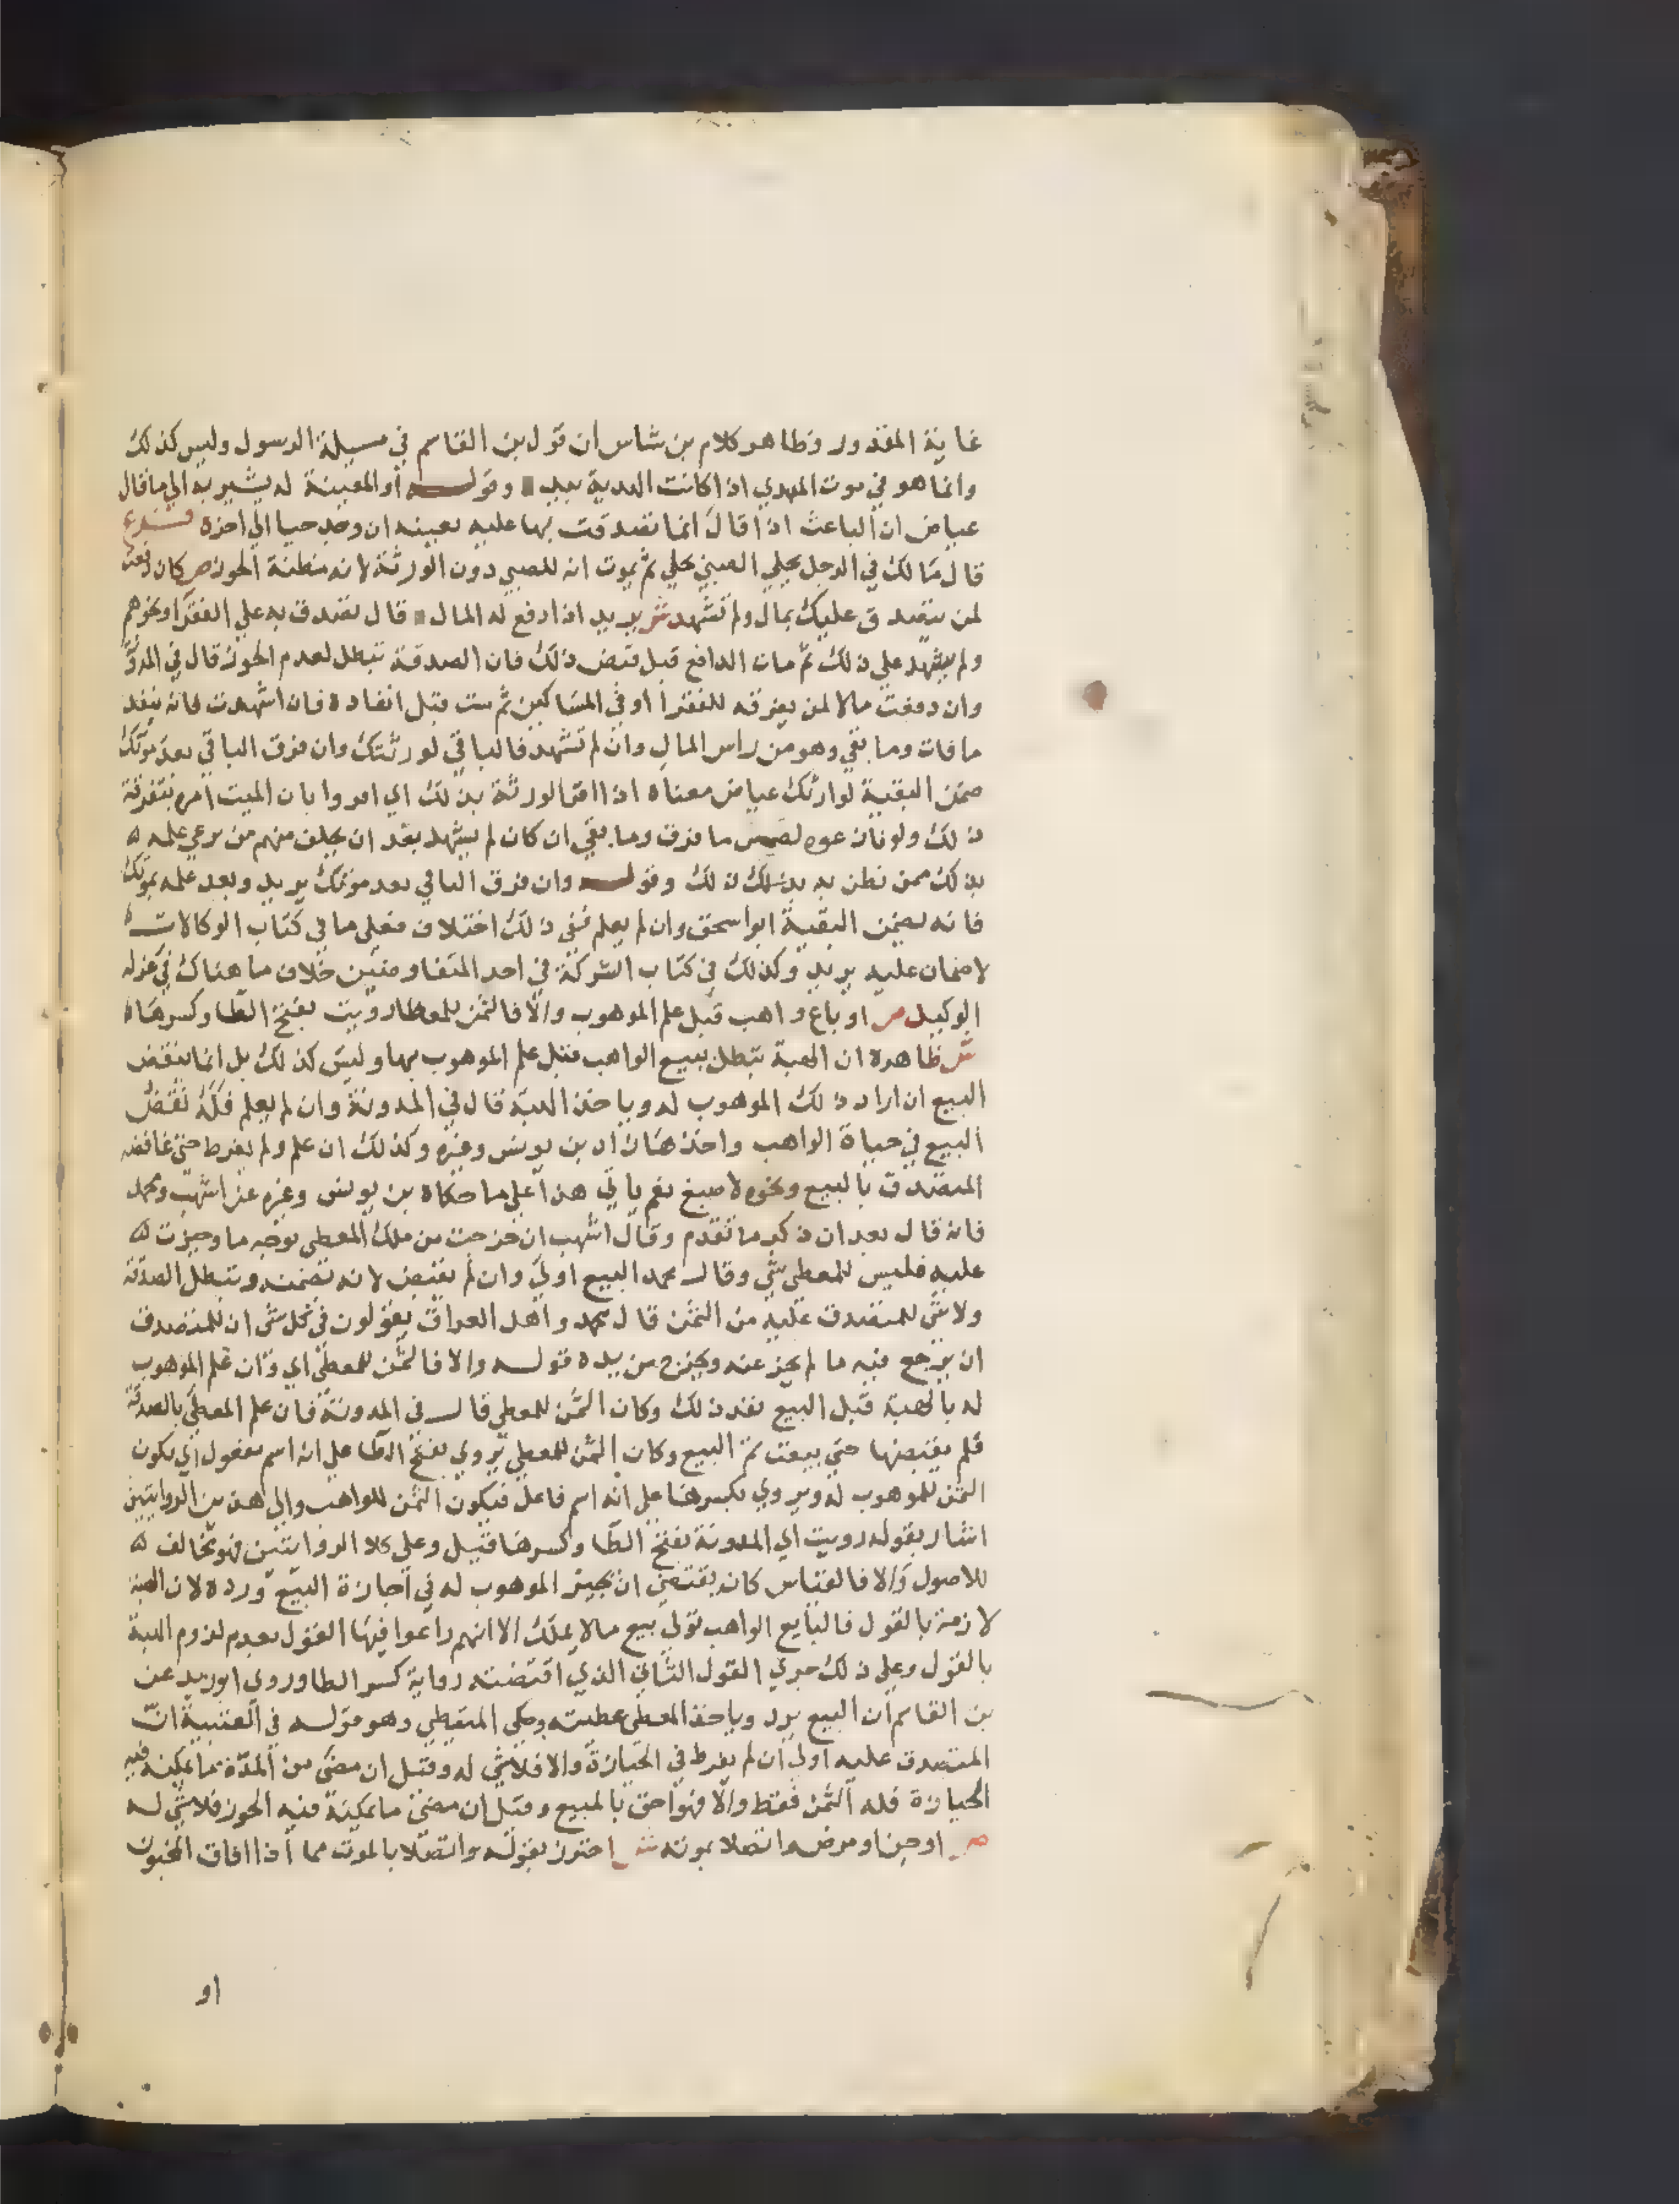 غاية المقدور وظاهر كلام بن شاس ان قول بن القاسم في مسيلة الرسول وليس كذلك
وانما هو في موت المهدي اذا كانت الهدية بيد وقوله أو المعينة له يشير به الي ما قال
عياض ان الباعث اذا قال انما تصدقت بها عليه بعينه ان وجد حيا الي اخره
قال مالك في الرجل يحلي الصبي بحلي ثم يموت انه للصبي دون الورثة لانه مظنة الحوز ص كان دفعت
لمن يتصدق عليك بمال ولم تشهد ش يريد اذا دفع له المال قال تصدق به علي الفقرا ونحوهم
ولم يشهد علي ذلك ثم مات الدافع قبل قبض ذلك فان الصدقة تبطل لعدم الحوز قال في المدونة
وان دفعت مالا لمن يفرقه للفقرا او في المساكين ثم مت قبل انفاده فان اشهدت فانه ينفد
ما فات وما بقي وهو من راس المال وان لم تشهد فالباقي لورثتك وان فرق الباقي بعد موتك
ضمن البقية لوارثك عياض معناه اذا اقر الورثة بذلك اي امروا بان الميت امره بتفرقة
ذلك ولو نازعوه لضمن ما فرق وما بقي ان كان لم يشهد بعد ان يحلف منهم من يرعي علمه
بذلك ممن نظن به بذلك ذلك وقوله وان فرق الباقي بعد موتك يريد وبعد علمه بموتك
فانه يضمن البقية ابو اسحق وان لم يعلم ففي ذلك اختلاف فعلي ما في كتاب الوكالات
لا ضمان عليه يريد وكذلك في كتاب الشركة في احد المتفاوضين خلاف ما هناك في عزله
الوكيل ص او باع واهب قبل علم الموهوب والا فالثمن للمعطا رويت بفتح الطا وكسرها
ش ظاهره ان الهبة تبطل ببيع الواهب قبل علم الموهوب بها وليس كذلك بل انما ينقض
البيع ان اراد ذلك الموهوب له وياخذ الهبة قال في المدونة وان لم يعلم فله نقض
البيع في حياة الواهب واخذها زاد بن يونس وغيره وكذلك ان علم ولم يفرط حتي غافضه
المتصدق بالبيع ونحوه لاصبغ نعم ياتي هذا علي ما حكاه بن يونس وغيره عن اشهب ومحمد
فانه قال بعد ان ذكر ما تقدم وقال اشهب ان خرجت من ملك المعطي بوجه ما وحيزت
عليه فليس للمعطي شي وقال محمد البيع اولي وان لم يقبض لانه تضمنه وتبطل الصدقة
ولا شي للمتصدق عليه من الثمن قال محمد واهل العراق يقولون في كل شي ان للمتصدق
ان يرجع فيه ما لم يحز عنه ويخرج من يده قوله والا فالثمن للمعطي اي وان علم الموهوب
له بالهبة قبل البيع نفذ ذلك وكان الثمن للمعطي قال في المدونة فان علم المعطي بالصدقة
فلم يقبضها حتي بيعت تم البيع وكان الثمن للمعطي يروي بفتح الطا علي انه اسم مفعول اي يكون
الثمن للموهوب له ويروي بكسرها علي انه اسم فاعل فيكون الثمن للواهب والي هذين الروايتين
اشار بقوله رويت اي المدونة بفتح الطا وكسرها قيل وعلي كلا الروايتين فهو مخالف
للاصول والا فالقياس كان يقتضي ان يخير الموهوب له في اجازة البيع ورده لان الهبة
لازمة بالقول فالبايع الواهب تولي بيع ما لا يملك الا انهم راعوا فيها القول بعدم لزوم الهبة
بالقول وعلي ذلك جري القول الثاني الذي اقتضته رواية كسر الطا وروي ابو زيد عن
بن القاسم ان البيع يرد وياخذ المعطي عطيته وحكي المتيطي وهو قوله في العتبية ان
المتصدق عليه اولي ان لم يفرط في الحيازة والا فلا شي له وقيل ان مضي من المدة ما يمكنه فيه
الحيازة فله الثمن فقط والا فهو احق بالمبيع وقيل ان مضي ما يمكنه فيه الحوز فلا شي له
ص او جن او مرض واتصلا بموته ش احترز بقوله واتصلا بالموت مما اذا افاق المجنون
او